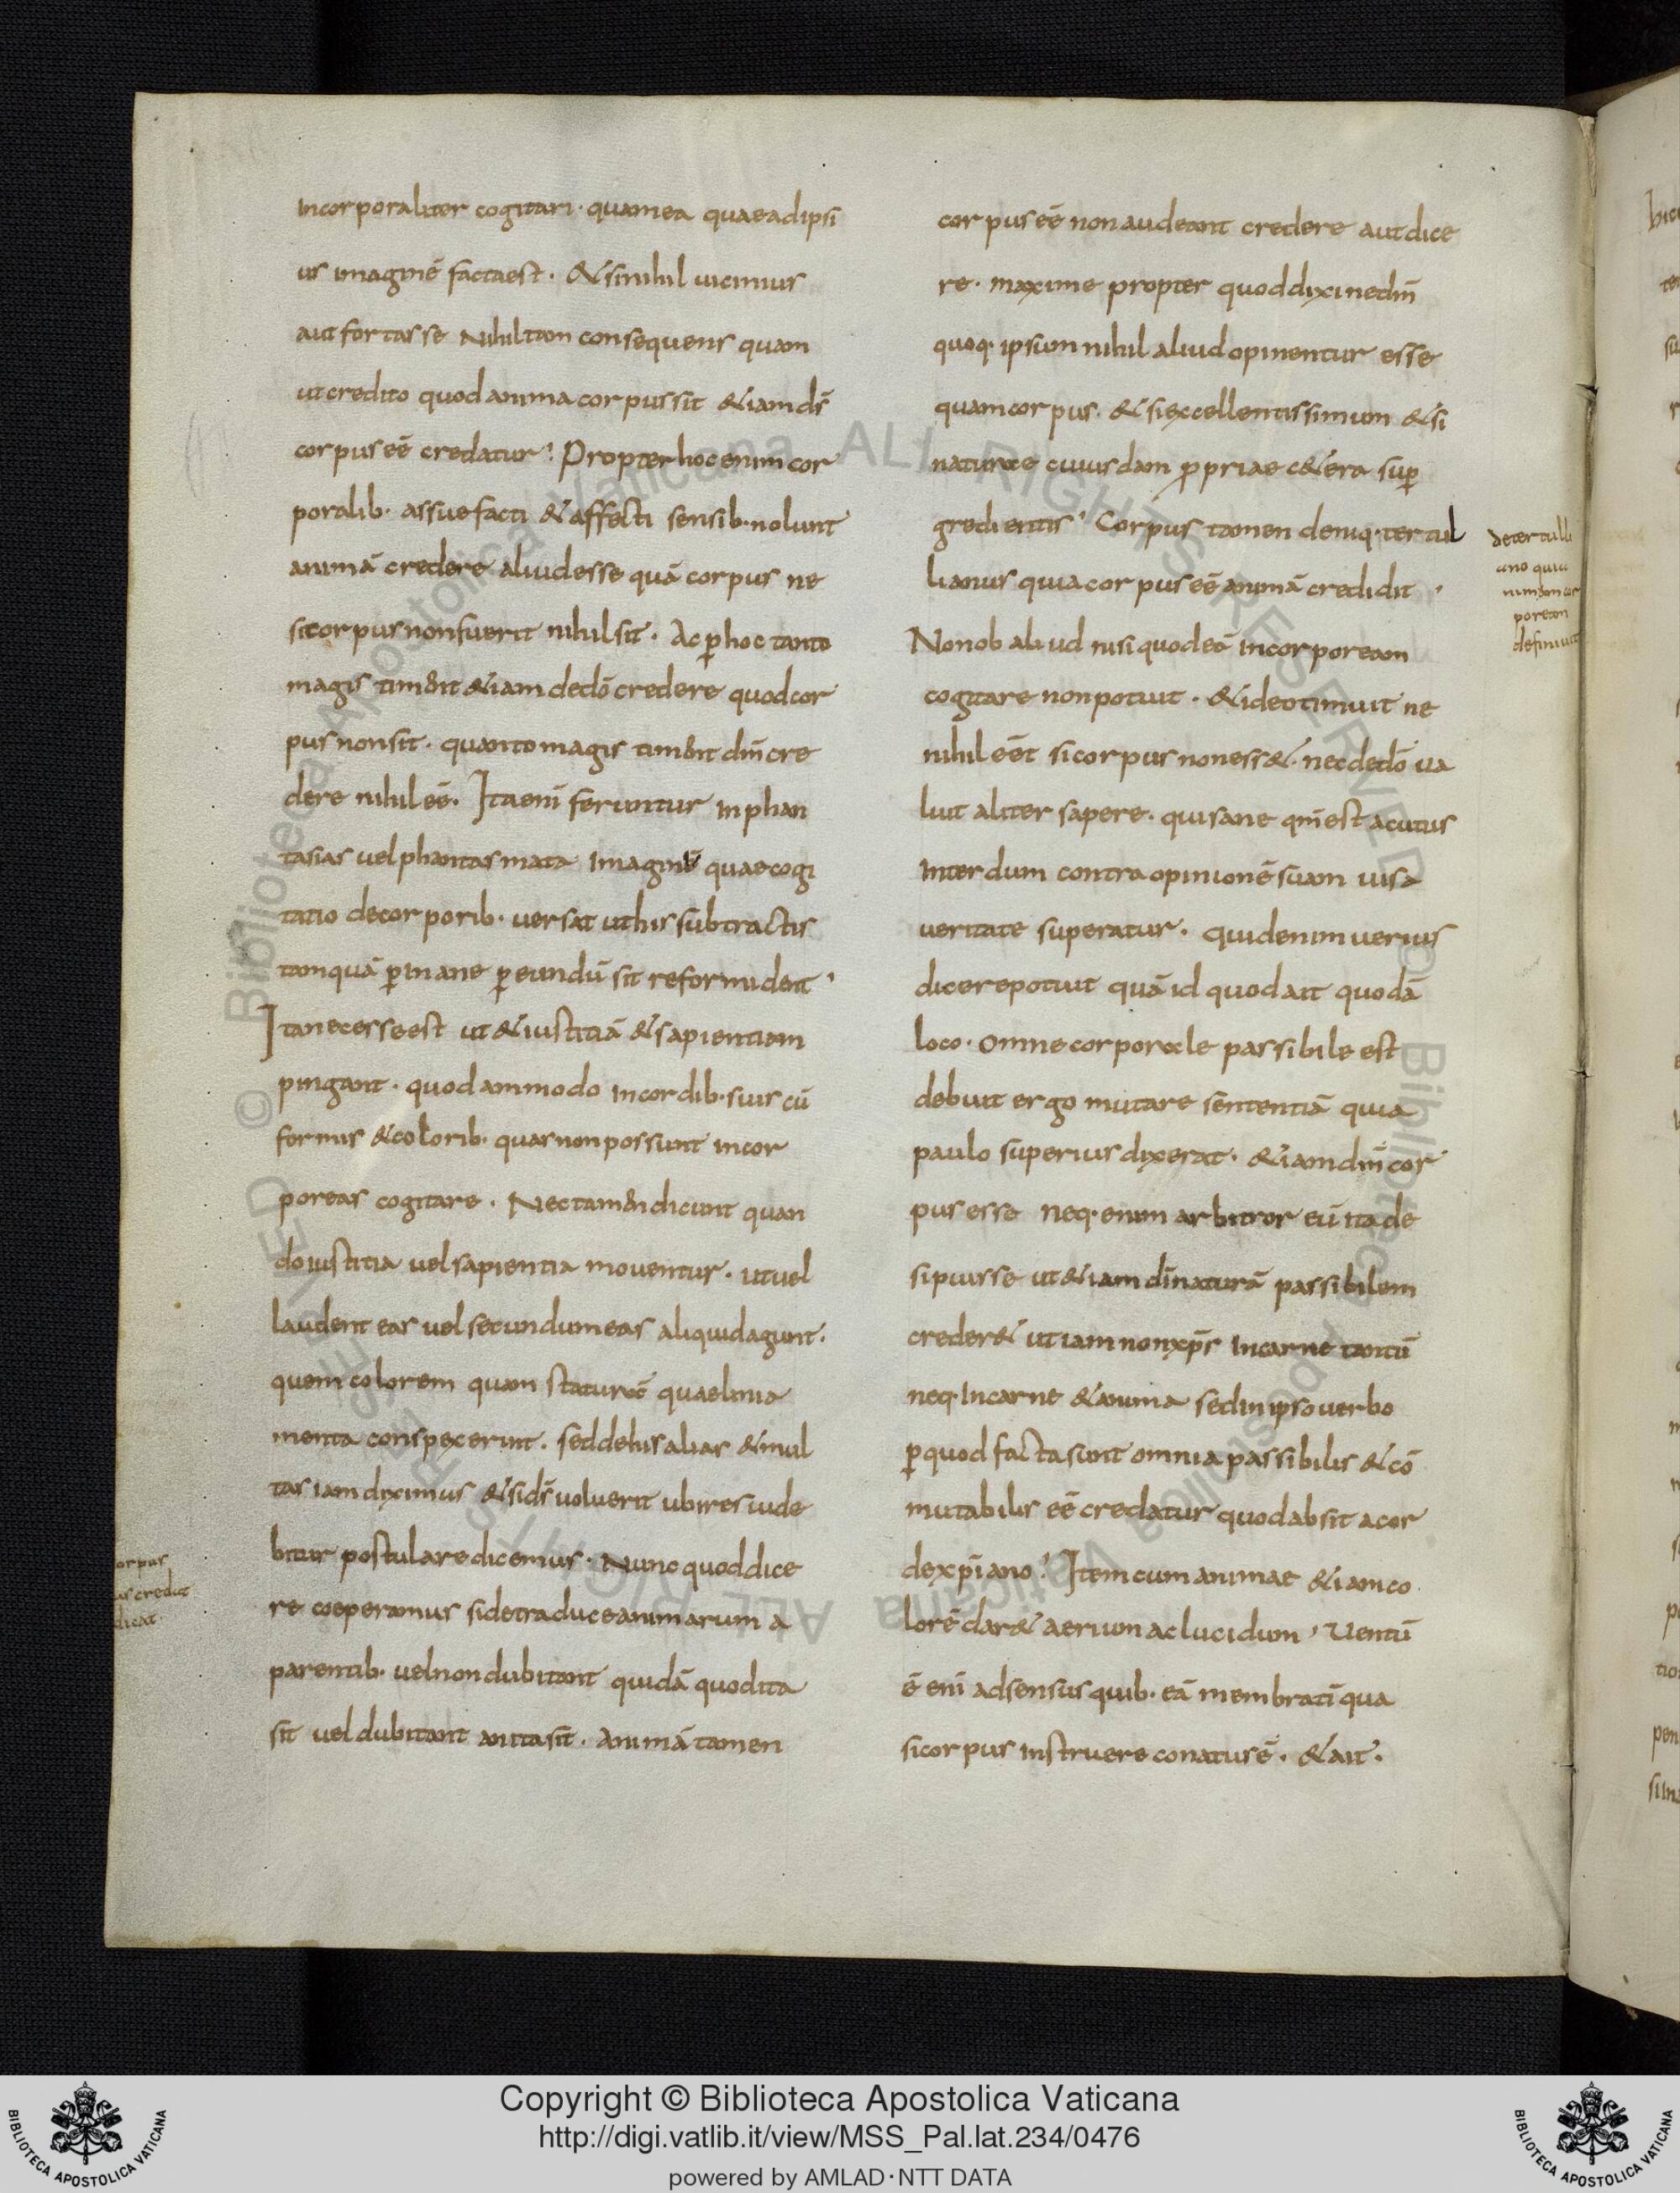 Incorporaliter cogitari · quam ea quae ad ipsi
us imaginē facta est · & si nihil uicinius
aut fortasse Nihil tam consequens quam
ut credito quod anima corpus sit &iam d̄s
corpus eē credatur? Propter hoc enim cor
poralib· assuefacti & affecti sensib· nolunt
animā credere aliud esse quā corpus ne
si corpus non fuerit nihil sit · Ac ꝑ hoc tanto
magis timent &iam de dō credere quod cor
pus non sit · quanto magis timent dm̄ cre
dere nihil eē · Ita eni feruntur in phan
tasias uel phantasmata Imaginū quae cogi
tatio de corporib· uersat ut his subtractis
tam quā ꝑ inane ꝑeundū sit reformident ·
Ita necesse est ut & iustitiā & sapientiam
pingant · quodammodo In cordib· suis cū
formis & colorib· quas non possunt incor
poreas cogitare · Nec tamen dicunt quan
do iustitia uel sapientia mouentur · ut uel
laudent eas uel secundum eas aliquid agant ·
quem colorem quam staturā quae linia
menta conspexerint · sed de his alias & mul
tas iam diximus & si d̄s uoluerit ubi res uide
bitur postulare dicemus · Nunc quod dice
re coeperamus si de traduce animarum a
parentib· uel non dubitant quidā quod ita
sit uel dubitant an ita sit · Animā tamen
orpus
credit
dicat
corpus eē non audeant credere aut dice
re · maxime propter quod dixi ne dm̄
quoq· ipsum nihil aliud opinentur esse
quam corpus · & si excellentissimum & si
naturae cuiusdam ꝓpriae c&era suꝑ
gredientis · Corpus tamen deniq· tertul
lianus quia corpus eē animā credidit ·
Non ob aliud nisi quod eā incorpoream
cogitare non potuit · & ideo timuit ne
nihil eēt si corpus non ess& · nec de dō ua
luit aliter sapere · qui sane qm̄ est acutus
Interdum contra opinionē suam uisa
ueritate superatur · quid enim uerius
dicere potuit quā id quod ait quodā
loco · omne corporale passibile est
debuit ergo mutare sententiā quia
paulo superius dixerat · &iam dm̄ cor
pus esse neq· enim arbitror eū ita de
sipuisse ut &iam dī naturā passibilem
creder& ut iam non xp̄s In carne tantū
neq· In carne & anima sed in ipso uerbo
ꝑ quod facta sunt omnia passibilis & cō
mutabilis eē credatur quod absit a cor
de xpi̅ano? Item cum animae &iam co
lorē dar& aerium ac lucidum · Uentū
ē eni ad sensus quib· eā membratī qua
si corpus instruere conatus ē · & ait ·
De tertulli
ano quia
poream
definiuit
Copyright © Biblioteca Apostolica Vaticana
http://digi.vatlib.it/view/MSS_Pal.lat.234/0476
powered by AMLAD·NTT DATA
BIBLIOTECA APOSTOLICA VATICANA
BIBLIOTECA APOSTOLICA VATICANA
© Biblioteca Apostolica Vaticana ALL RIGHTS RESERVED
© Biblioteca Apostolica Vaticana ALL RIGHTS RESERVED